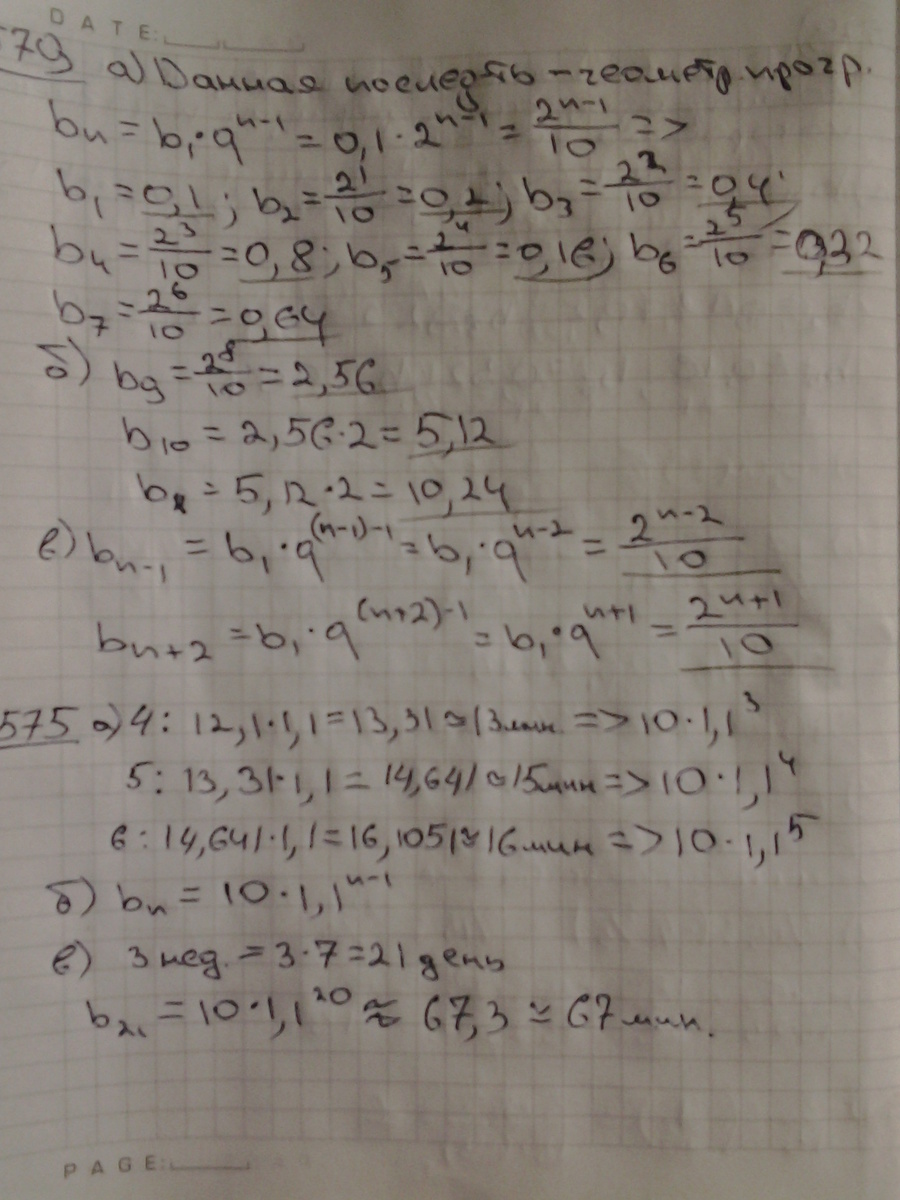 DATE:
579 а) Данная последть – геометр. прогр.
bₙ = b₁·qⁿ⁻¹ = 0,1·2ⁿ⁻¹ = 2ⁿ⁻¹/10 =>
b₁ = 0,1; b₂ = 2¹/10 = 0,2; b₃ = 2²/10 = 0,4;
b₄ = 2³/10 = 0,8; b₅ = 2⁴/10 = 0,16; b₆ = 2⁵/10 = 0,32
b₇ = 2⁶/10 = 0,64
б) b₉ = 2⁸/10 = 2,56
b₁₀ = 2,56·2 = 5,12
b = 5,12·2 = 10,24
в) bₙ₋₁ = b₁·q⁽ⁿ⁻¹⁾⁻¹ = b₁·qⁿ⁻² = 2ⁿ⁻²/10
bₙ₊₂ = b₁·q⁽ⁿ⁺²⁾⁻¹ = b₁·qⁿ⁺¹ = 2ⁿ⁺¹/10
575 а) 4: 12,1·1,1 = 13,31 ≈ 13 мин. => 10·1,1³
5: 13,31·1,1 = 14,641 ≈ 15 мин => 10·1,1⁴
6: 14,641·1,1 = 16,1051 ≈ 16 мин => 10·1,1⁵
б) bₙ = 10·1,1ⁿ⁻¹
в) 3 нед. = 3·7 = 21 день
b₂₁ = 10·1,1²⁰ ≈ 67,3 ≃ 67 мин.
PAGE: